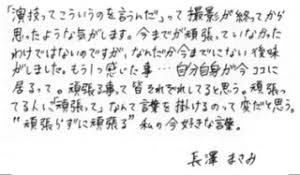 「演技ってこういうのを言うんだ」って撮影が終ってから
思ったような気がします。今までが頑張っていなかった
わけではないのですが、なんだか今までにない後味
がしました。もう1つ感じた事…自分自身が今ココに
居るって。頑張る事って皆それぞれしてると思う。頑張っ
てる人に「頑張って」なんて言葉を掛けるのって変だと思う。
"頑張らずに頑張る" 私の今好きな言葉。
長澤 まさみ